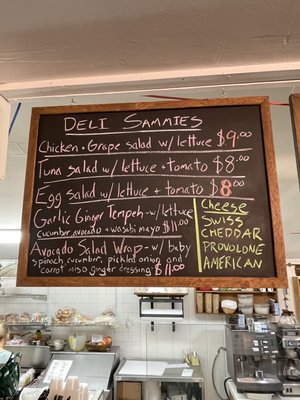 DELI SAMMIES
Chicken + Grape salad w/ lettuce $9.00
Tuna salad w/ lettuce + tomato $8.00
Egg salad w/ lettuce + tomato $8.00
Garlic Ginger Tempeh - w/ lettuce
cucumber avocado + wasabi mayo $11.00
Avocado Salad Wrap - w/ baby
spinach, cucumber, pickled onion and
carrot miso ginger dressing: $11.00
Cheese
SWISS
CHEDDAR
PROVOLONE
AMERICAN